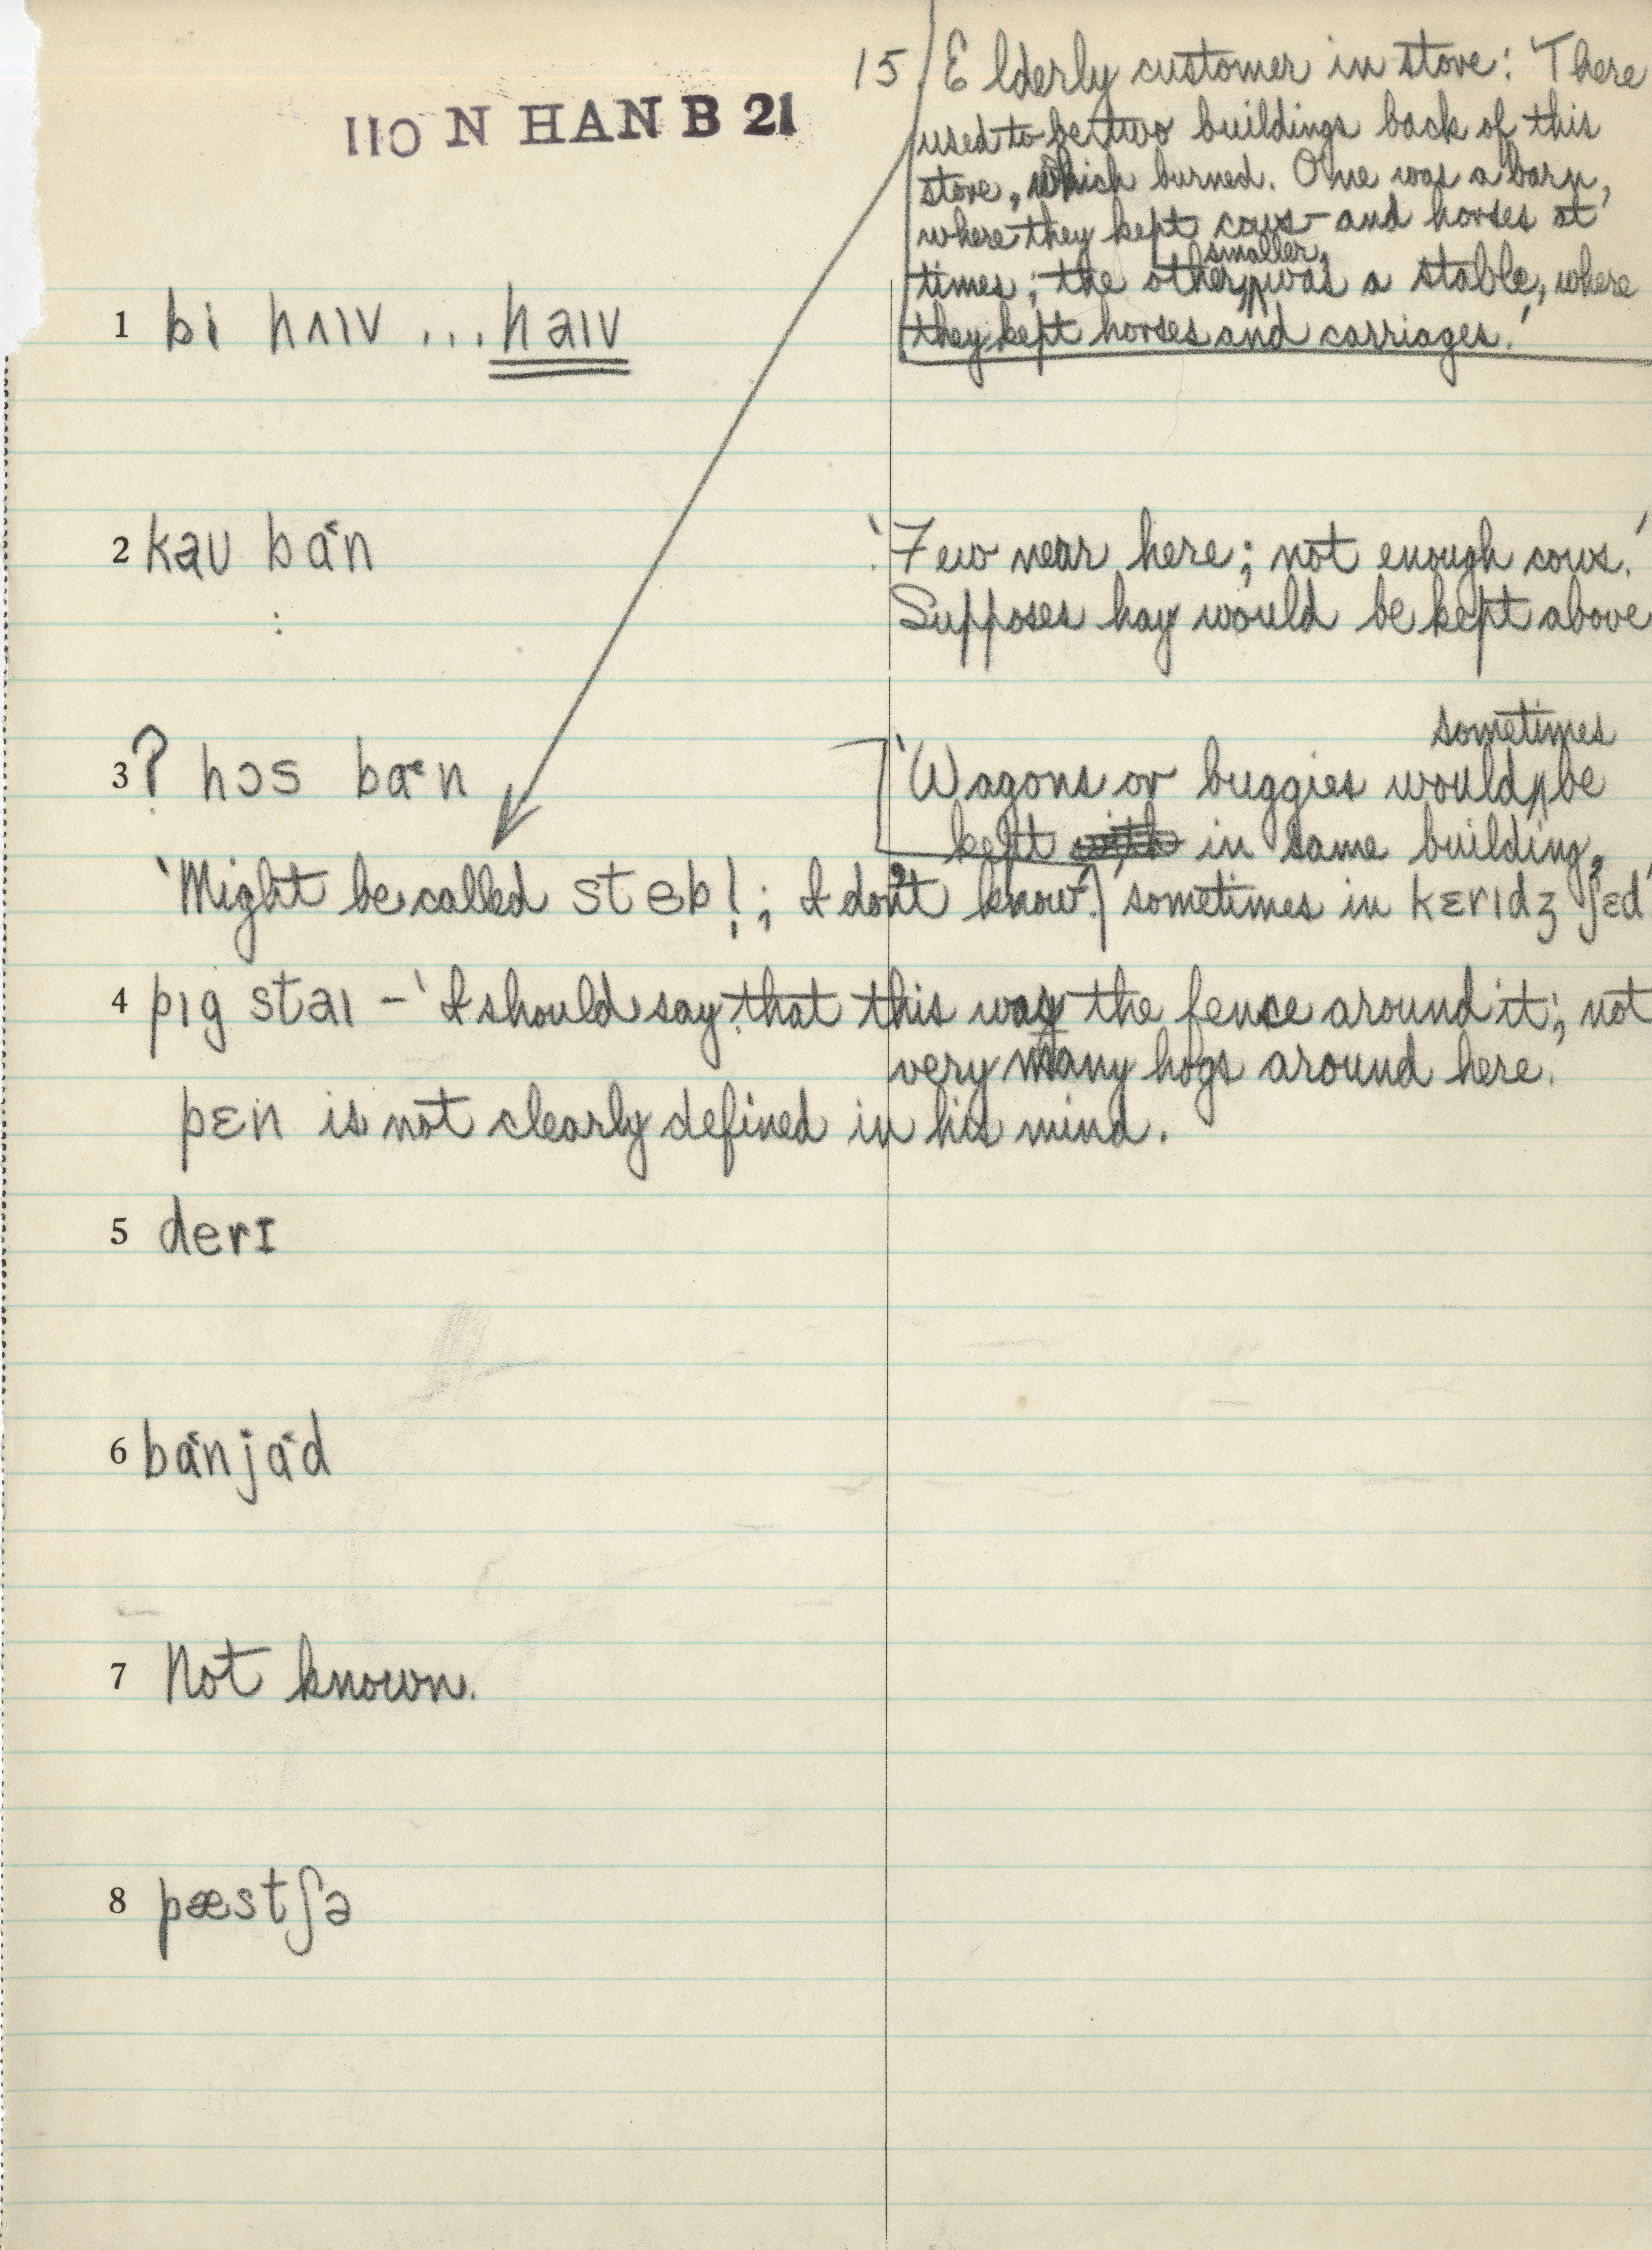 110 N HAN B 21
15. Elderly customer in store: 'There
used to be two buildings back of this
store, which burned. One was a barn,
where they kept cows - and horses at
smaller,
times; the other, ʌ was a stable, where
they kept horses and carriages.'
1 bi hʌɪv ... haɪv
2 kaʊ ba˂n
:
'Few near here; not enough cows.'
Supposes hay would be kept above
3 ? hɔs ba˂n
sometimes
'Wagons or buggies would ʌ be
kept with in same building,
'Might be called steb!̩; I don't know.' sometimes in kɛrɪdʒ ʃɛd'
4 pɪg staɪ – 'I should say that this was the fence around it; not
very many hogs around here.
pɛn is not clearly defined in his mind.
5 derɪ
6 ba˂nja˂d
7 Not known.
8 pæstʃə